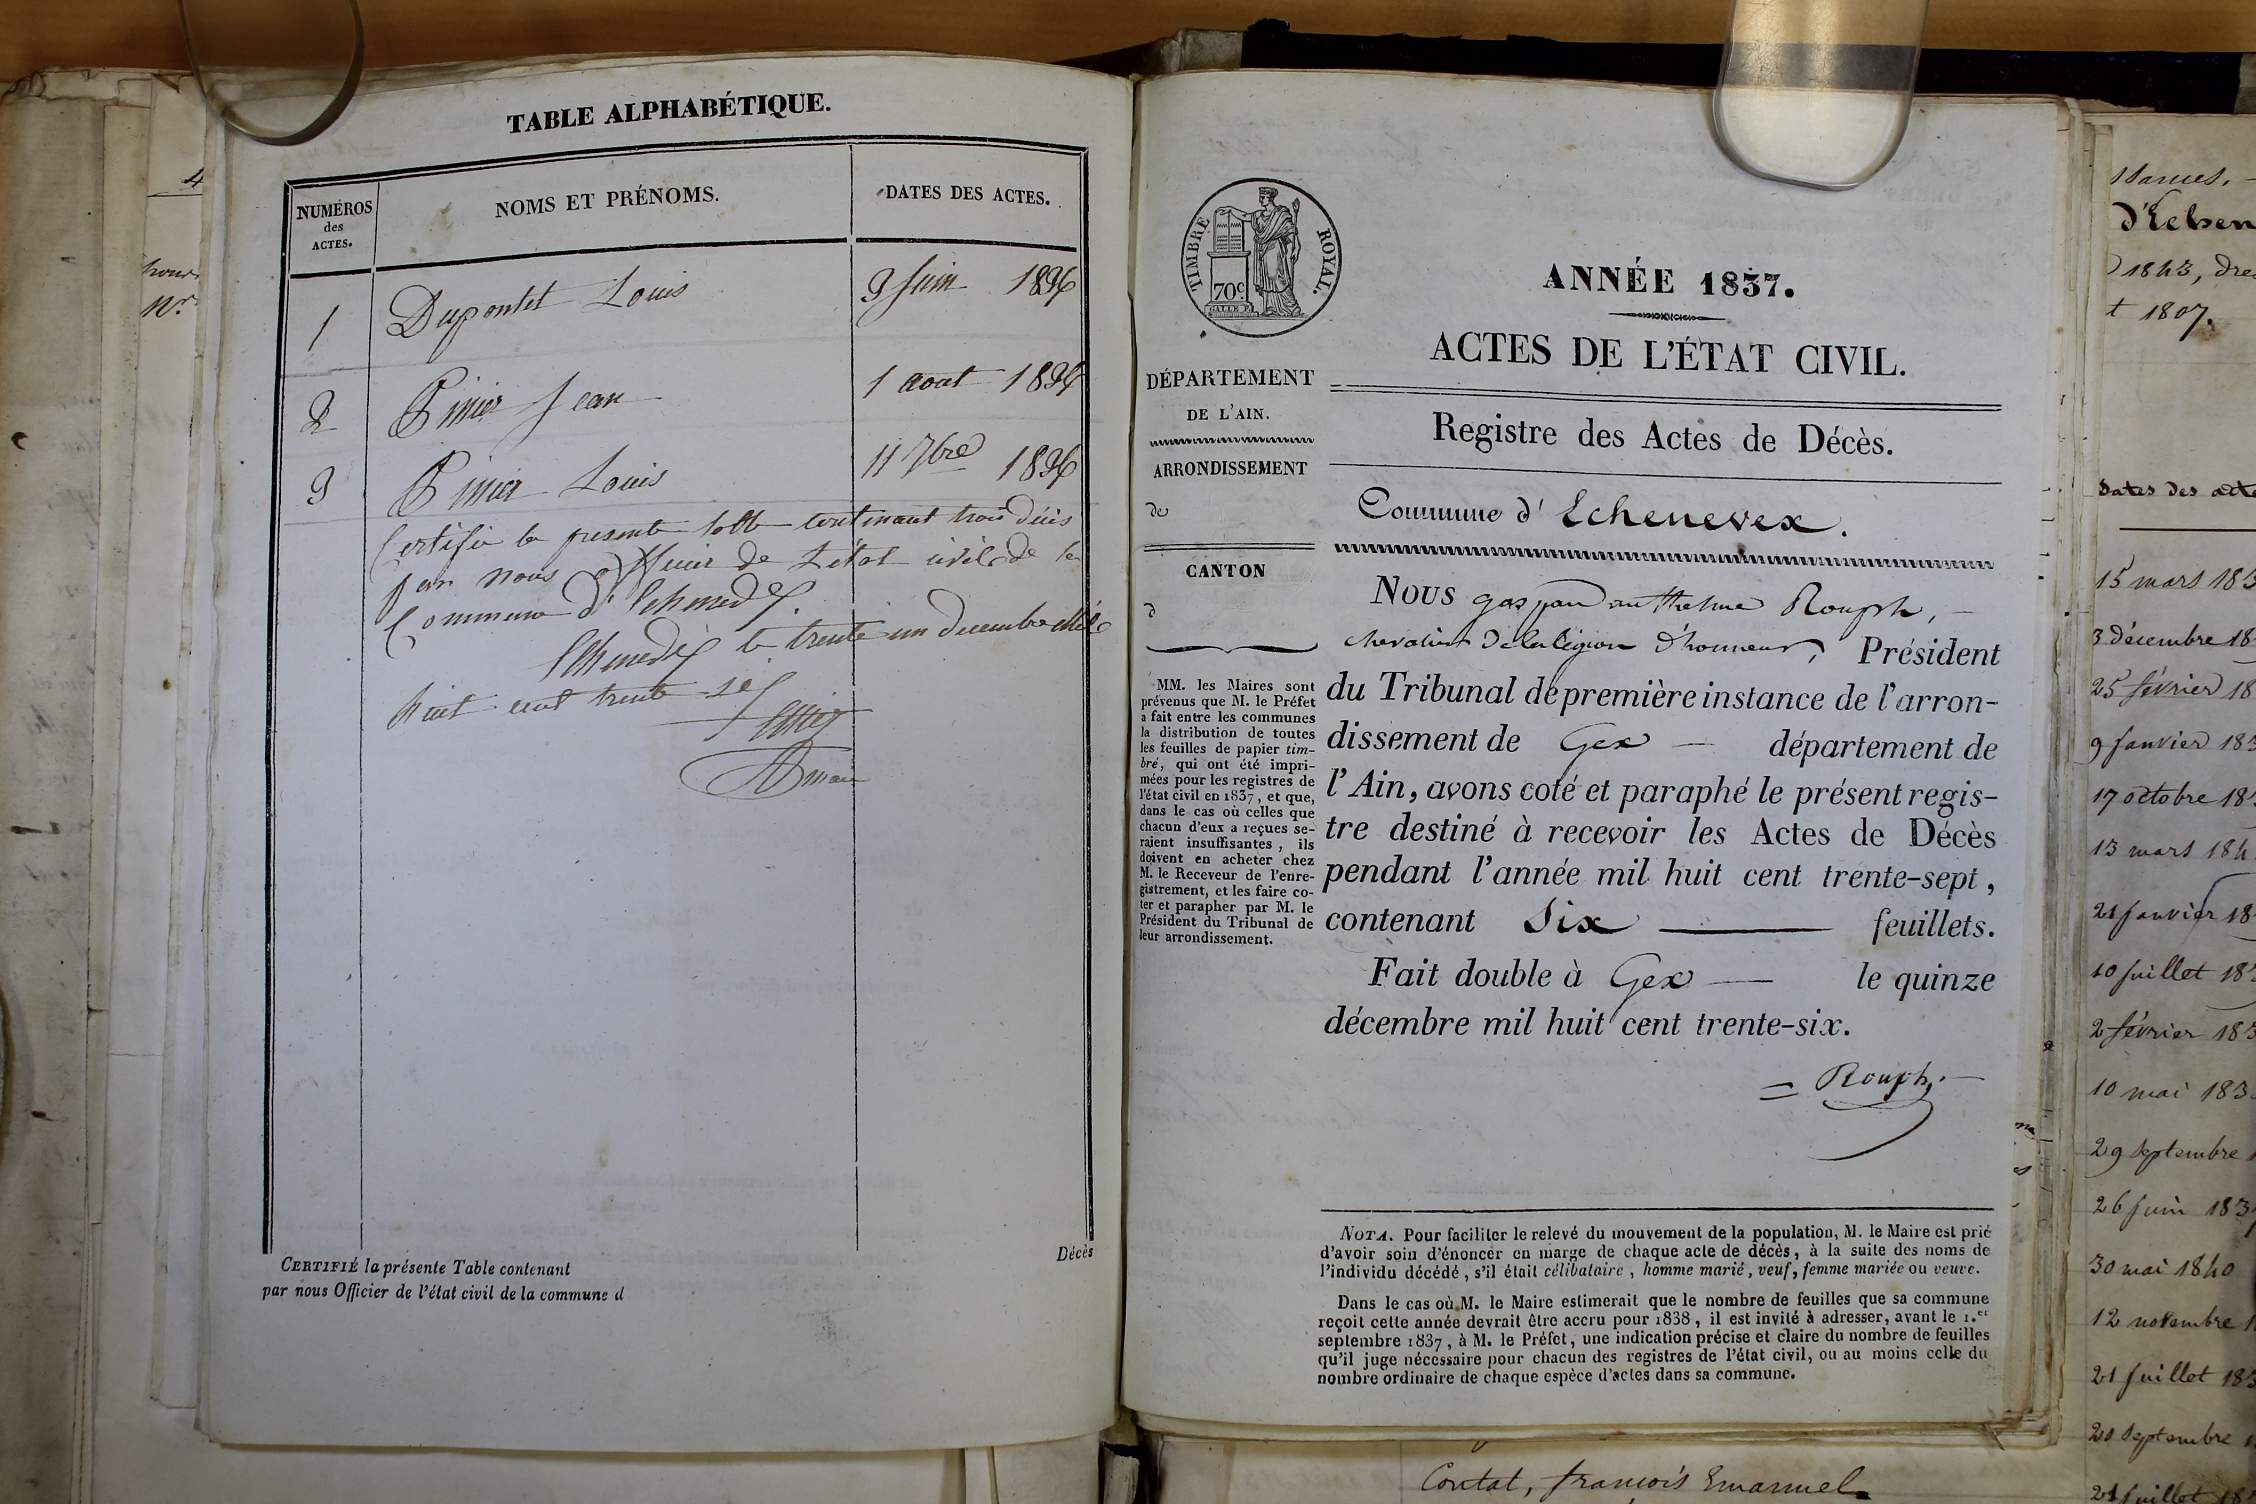 TABLE ALPHABÉTIQUE.
NUMÉROS
des
ACTES.
NOMS ET PRÉNOMS.
DATES DES ACTES.
1 Dupontet Louis 9 Juin 1836
2 Pinier Jean 1 aout 1836
3 Pinier Louis 11 7bre 1836
Certifié la presente table contenant trois décès
par nous officier de l'état civil de la
Commune d'Echenevex.
Echenevex le trente un decembre mil
huit cent trente six
maire
CERTIFIÉ la présente Table contenant
par nous Officier de l'état civil de la commune d
Décès
TIMBRE ROYAL.
70c.
ANNÉE 1837.
ACTES DE L'ÉTAT CIVIL.
Registre des Actes de Décès.
Commune d'Echenevex.
DÉPARTEMENT
DE L'AIN.
ARRONDISSEMENT
de
CANTON
d
MM. les Maires sont
prévenus que M. le Préfet
a fait entre les communes
la distribution de toutes
les feuilles de papier tim-
bré, qui ont été impri-
mées pour les registres de
l'état civil en 1837, et que,
dans le cas où celles que
chacun d'eux a reçues se-
raient insuffisantes, ils
doivent en acheter chez
M. le Receveur de l'enre-
gistrement, et les faire co-
ter et parapher par M. le
Président du Tribunal de
leur arrondissement.
Nous gaspard anthelme Rouph,
chevalier de la légion d'honneur, Président
du Tribunal de première instance de l'arron-
dissement de Gex — département de
l'Ain, avons coté et paraphé le présent regis-
tre destiné à recevoir les Actes de Décès
pendant l'année mil huit cent trente-sept,
contenant Six — feuillets.
Fait double à Gex — le quinze
décembre mil huit cent trente-six.
= Rouph. —
NOTA. Pour faciliter le relevé du mouvement de la population, M. le Maire est prié
d'avoir soin d'énoncer en marge de chaque acte de décès, à la suite des noms de
l'individu décédé, s'il était célibataire, homme marié, veuf, femme mariée ou veuve.
Dans le cas où M. le Maire estimerait que le nombre de feuilles que sa commune
reçoit cette année devrait être accru pour 1838, il est invité à adresser, avant le 1.er
septembre 1837, à M. le Préfet, une indication précise et claire du nombre de feuilles
qu'il juge nécessaire pour chacun des registres de l'état civil, ou au moins celle du
nombre ordinaire de chaque espèce d'actes dans sa commune.
Contat, françois Emanuel
d'Echen
1843, dre
t 1807.
Dates des acte
15 mars 183
3 décembre 18
25 février 18
9 janvier 183
17 octobre 18
13 mars 184
21 janvier 18
10 juillet 18
2 février 183
10 mai 183
29 septembre
26 juin 183
30 mai 1840
12 novembre 1
21 juillet 183
20 septembre
21 juillet 18